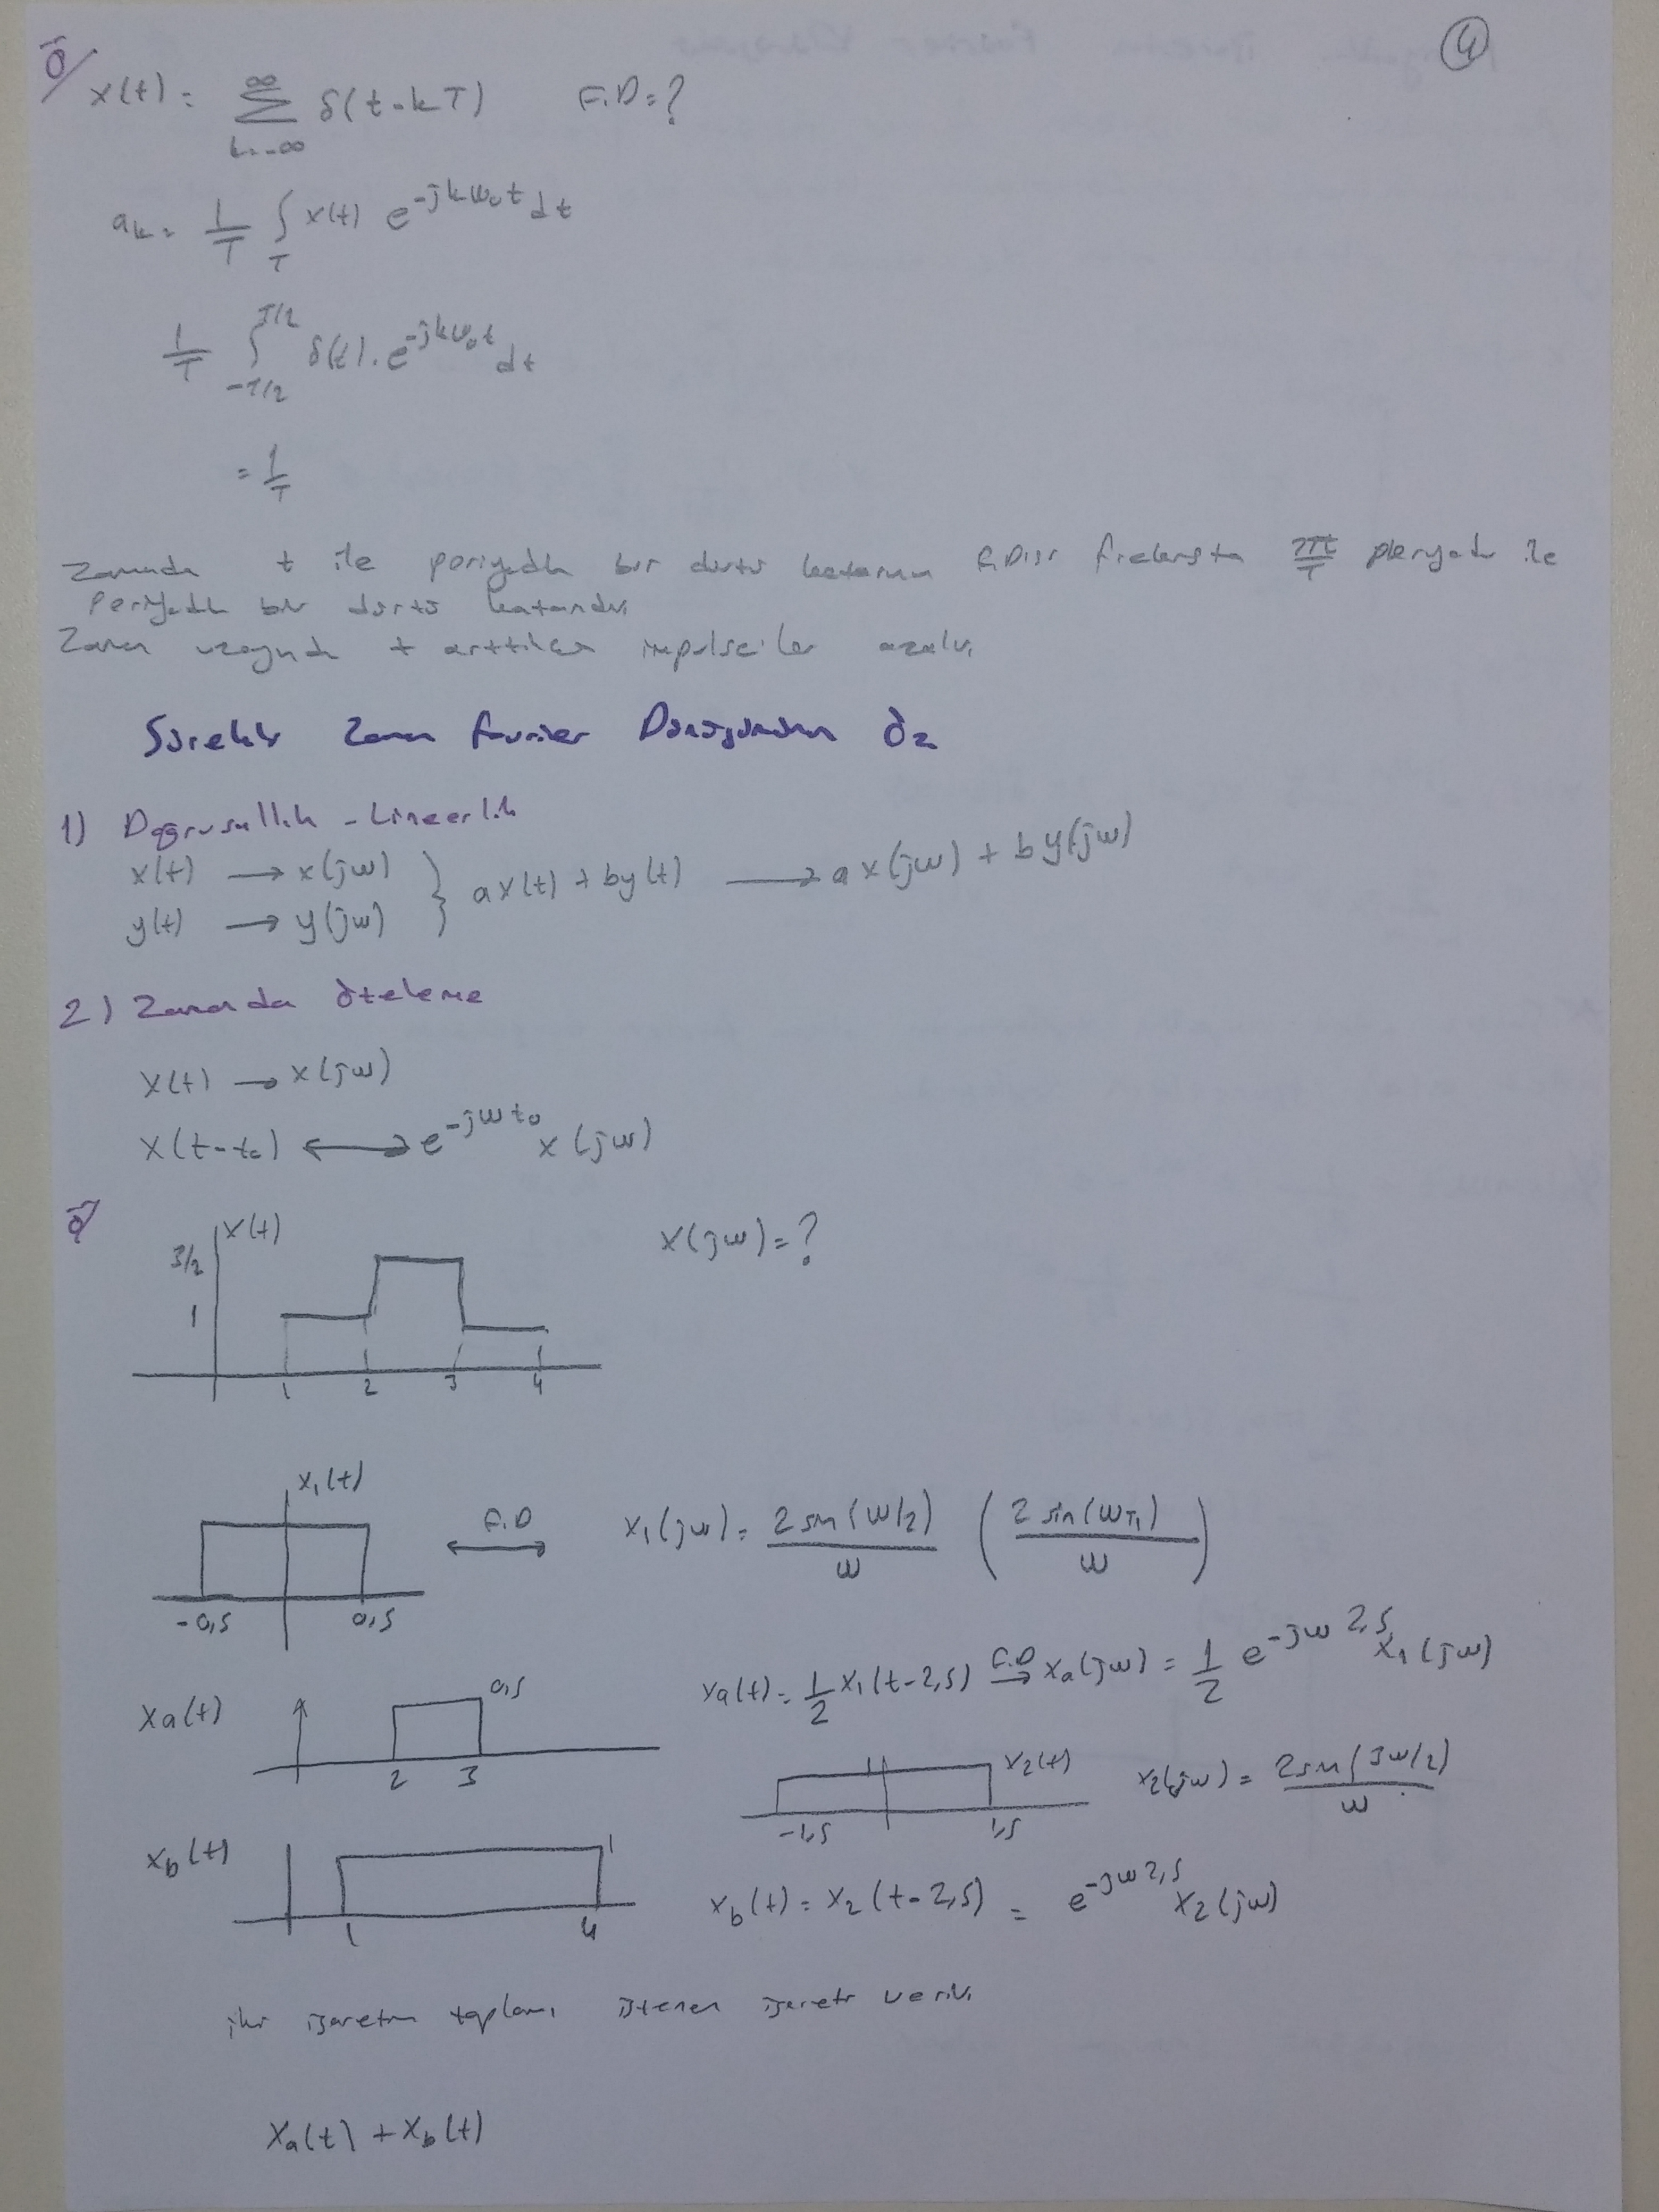 4
Ö/ x(t) = ∞ Σ k=-∞ δ(t-kT) F.D=?
a_k = 1/T ∫_T x(t) e^{-jkω₀t} dt
1/T ∫_{-T/2}^{T/2} δ(t). e^{-jkω₀t} dt
= 1/T
Zamanda t ile periyodik bir dürtü katarının F.D'si frekansta 2π/T periyodu ile
periyodik bir dürtü katarıdır.
Zaman uzayında t arttıkça impulse'ler azalır.
Sürekli Zaman Fourier Dönüşümünün Öz
1) Doğrusallık - Lineerlik
x(t) → x(jω) } ax(t) + by(t) → ax(jω) + by(jω)
y(t) → y(jω)
2) Zamanda öteleme
x(t) → x(jω)
x(t-t₀) ↔ e^{-jωt₀} x(jω)
Ö/ x(t) x(jω)=?
3/2
1
1 2 3 4
x₁(t)
F.D ↔ x₁(jω) = 2 sin(ω/2)/ω ( 2 sin(ωT₁)/ω )
-0,5 0,5
xa(t) 0,5 xa(t) = 1/2 x₁(t-2,5) F.D → xa(jω) = 1/2 e^{-jω2,5} x₁(jω)
2 3
1 x₂(t) x₂(jω) = 2sin(3ω/2)/ω
-1,5 1,5
xb(t) 1 xb(t) = x₂(t-2,5) = e^{-jω2,5} x₂(jω)
1 4
iki işaretin toplamı istenen işareti verir.
xa(t) + xb(t)